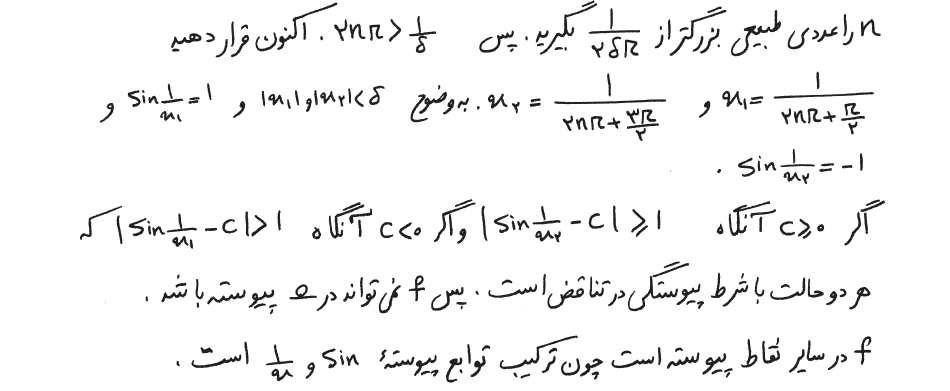 n را عددی طبیعی بزرگتر از 1/۲δπ بگیرید. پس ۲nπ > 1/δ. اکنون قرار دهید
x₁ = 1/(۲nπ + π/۲) و x₂ = 1/(۲nπ + ۳π/۲). به وضوح |x₁| و |x₂| < δ و sin 1/x₁ = 1 و
sin 1/x₂ = -1.
اگر c ≥ 0 آنگاه |sin 1/x₂ - c| ≥ 1 و اگر c < 0 آنگاه |sin 1/x₁ - c| > 1 که
هر دو حالت با شرط پیوستگی در تناقض است. پس f نمی‌تواند در ۰ پیوسته باشد.
f در سایر نقاط پیوسته است چون ترکیب توابع پیوستهٔ sin و 1/x است.